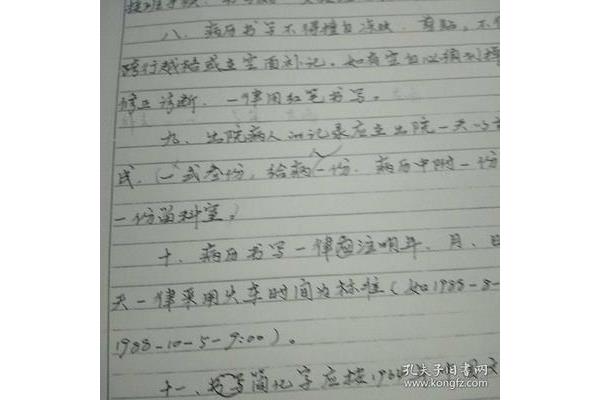 八、病历书写不得擅自涂改、剪贴，不
跨行越格或在空白补记。如有空白必须划掉
修正诊断，一律用红笔书写。
九、出院病人的记录应在出院一天以
成。(一式叁份，给病一份，病历中附一份
一份留科室。)
十、病历书写一律注明年、月、日
天一律采用火车时间为标准(如1988-8-
1988-10-5-9:00)。
十一、书写简化字应按
孔夫子旧书网
www.kongfz.com